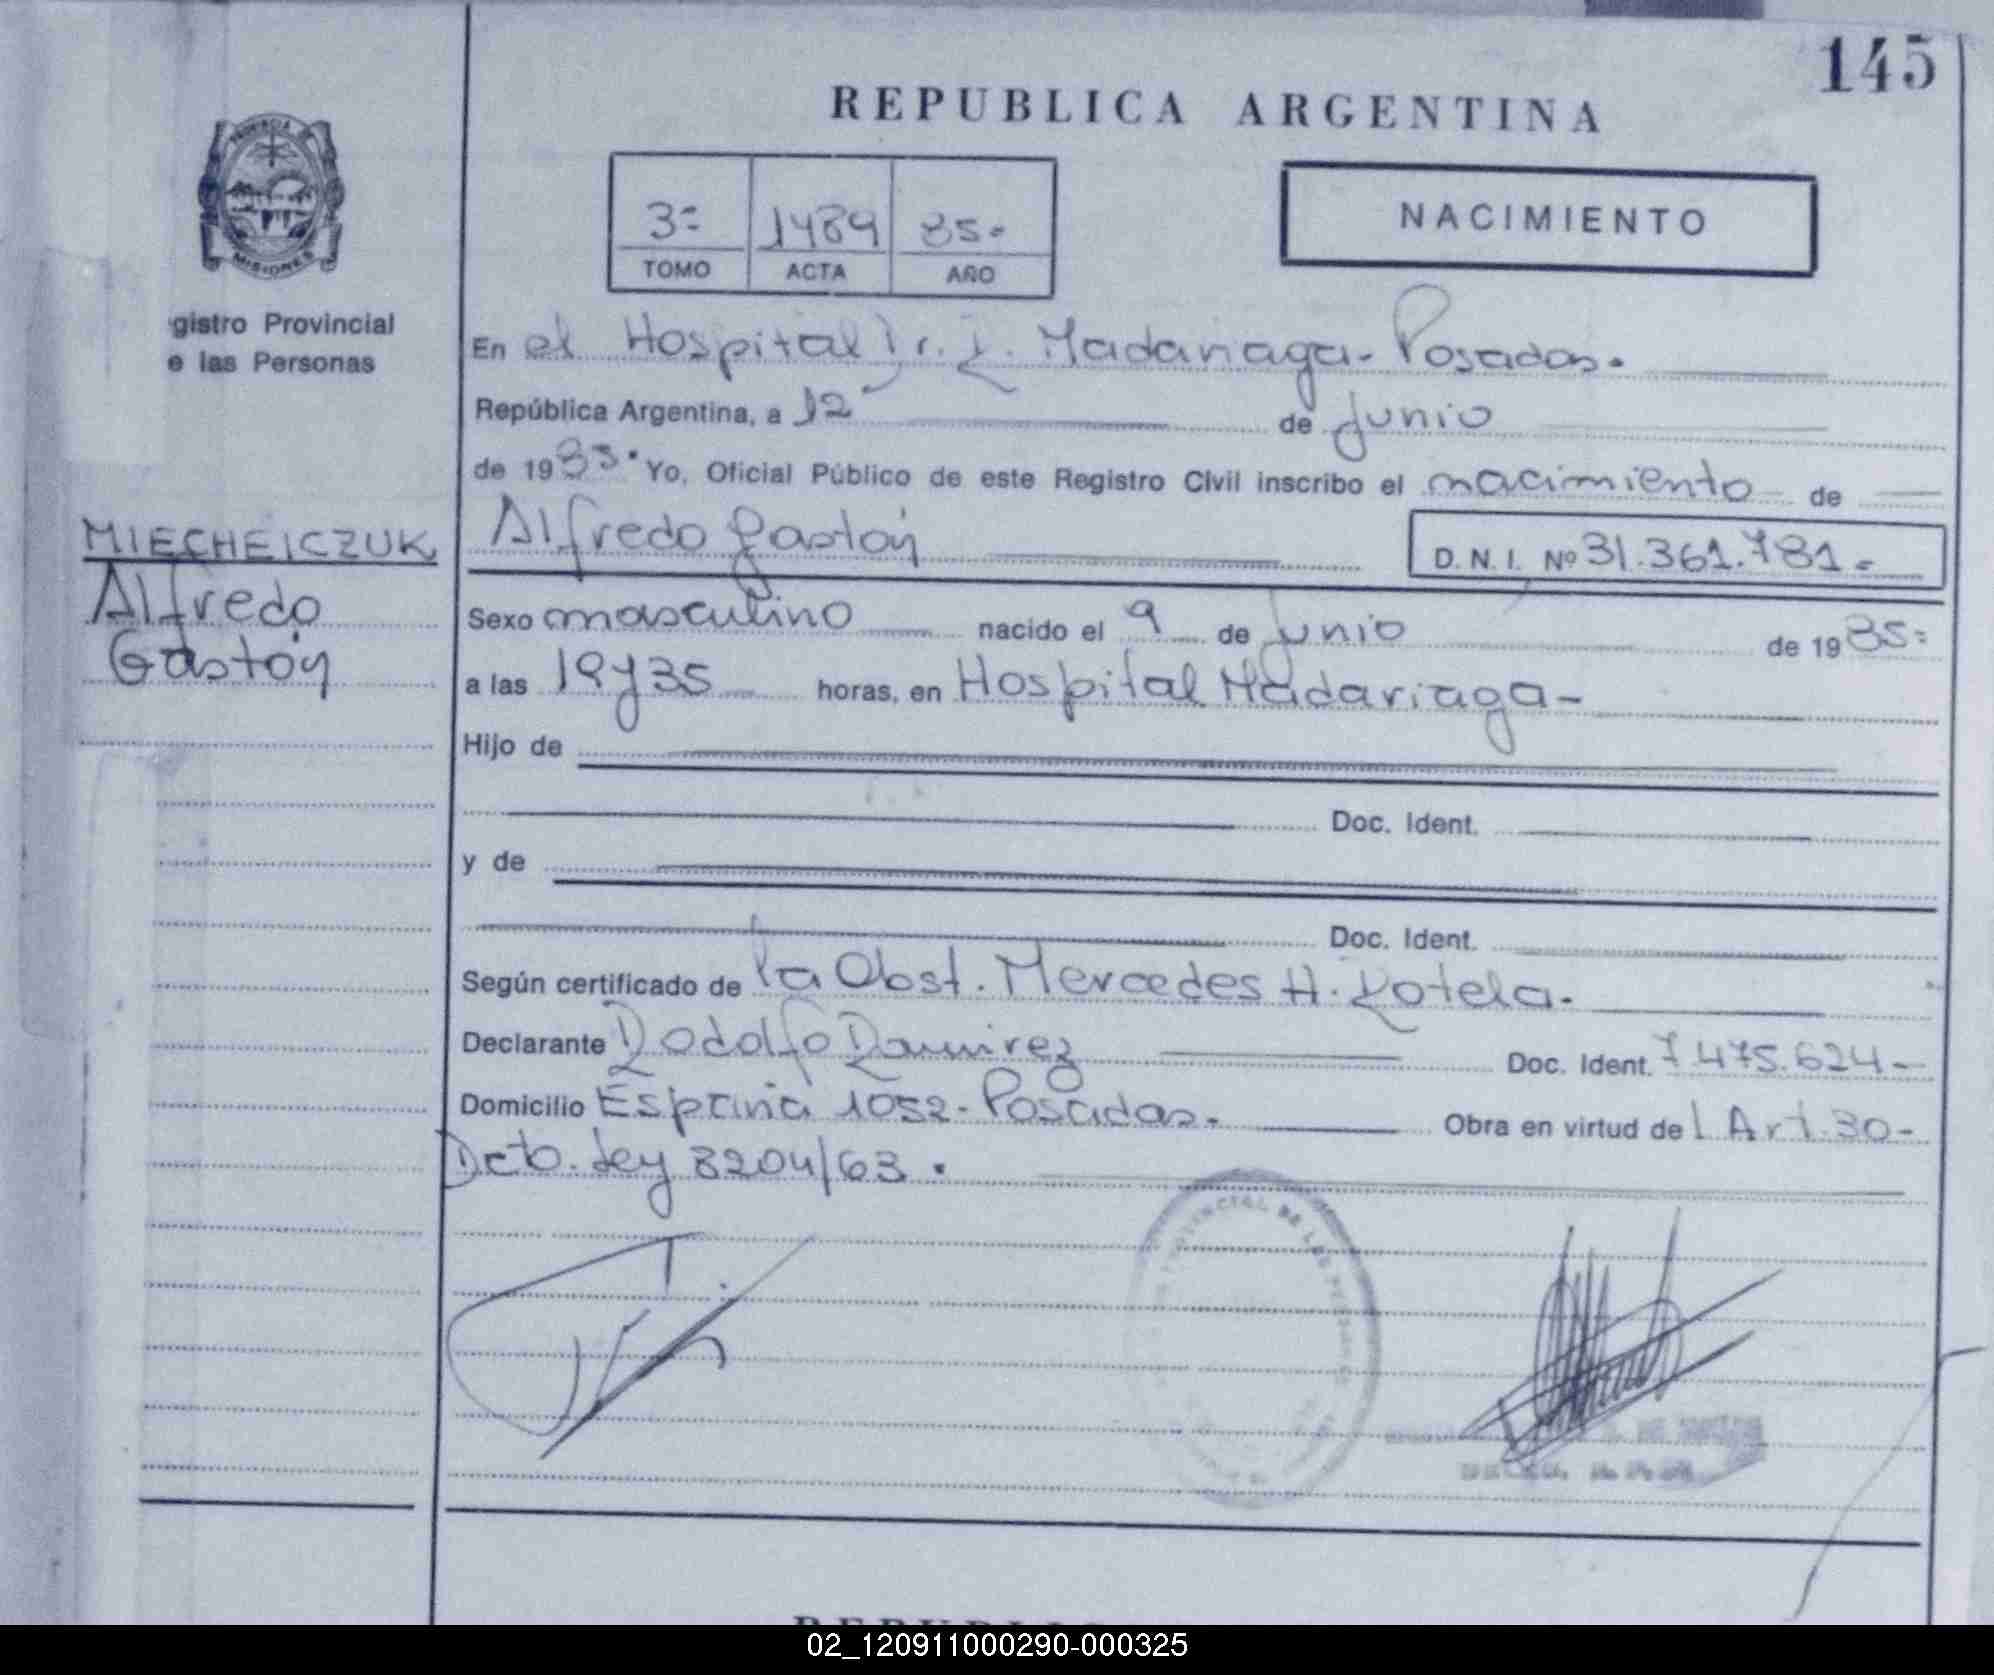 145
REPUBLICA ARGENTINA
PROVINCIA
MISIONES
3=
1489
85-
TOMO
ACTA
AÑO
NACIMIENTO
gistro Provincial
e las Personas
En el Hospital Dr. R. Madariaga- Posadas.
República Argentina, a 12 de Junio
de 1985. Yo, Oficial Público de este Registro Civil inscribo el nacimiento de
Alfredo Gastón D.N.I. Nº 31.361.781.-
MIECHEICZUK
Alfredo
Gastón
Sexo masculino nacido el 9 de Junio de 1985=
a las 19y35 horas, en Hospital Madariaga-
Hijo de
Doc. Ident.
y de
Doc. Ident.
Según certificado de la Obst. Mercedes H. Kotela.
Declarante Rodolfo Ramirez Doc. Ident. 7.475.624-
Domicilio España 1052- Posadas. Obra en virtud del Art. 30-
Dcto. Ley 8204/63.
PROVINCIAL DE LAS PERSONAS
02_120911000290-000325